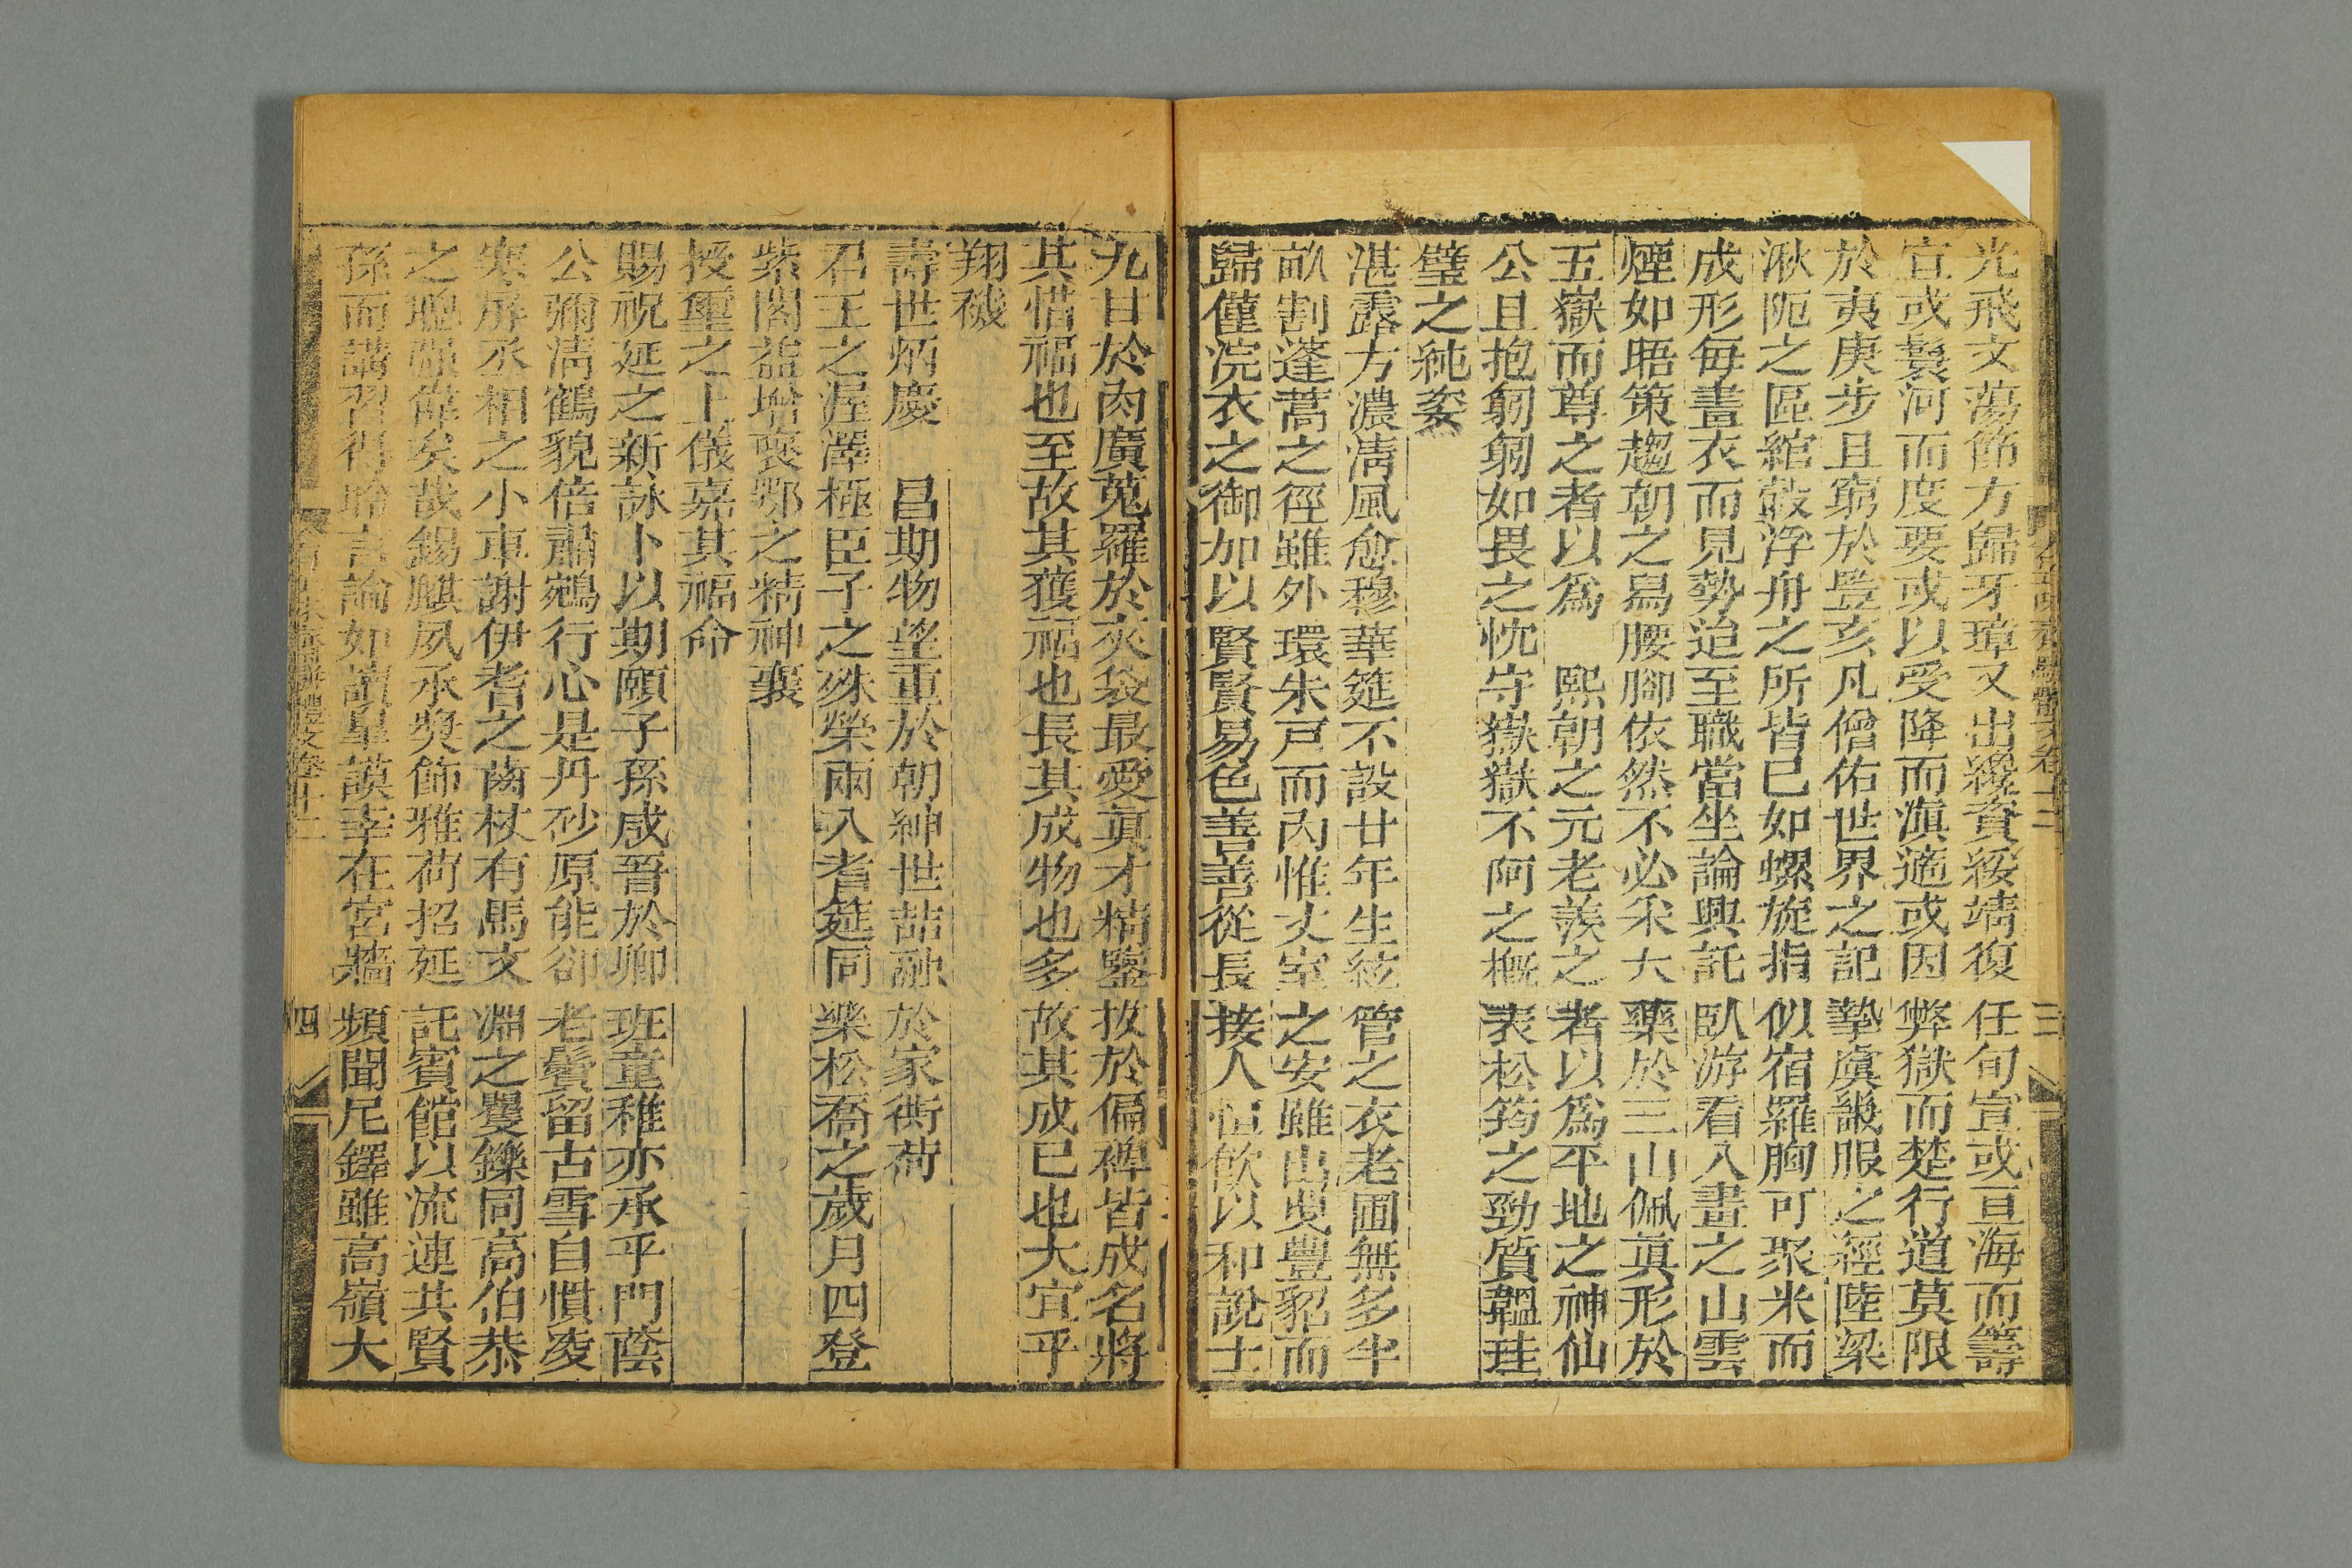 光飛文蕩節方歸牙璋又出纔資綏靖復任旬宣或亘海而籌
宜或襲河而度要或以受降而滇適或因弊獄而楚行道莫限
於夷庚步且窮於豎亥凡僧佑世界之記摯虞畿服之經陸梁
湫阨之區綰轂浮舟之所皆已如螺旋指似宿羅胸可聚米而
成形每晝衣而見勢迨至職當坐論興託臥游看入畫之山雲
煙如晤策趨朝之舄腰腳依然不必釆大藥於三山佩眞形於
五嶽而尊之者以爲　熙朝之元老羨之者以爲平地之神仙
公且抱匑匑如畏之忱守嶽嶽不阿之概表松筠之勁質韞珪
璧之純姿
湛露方濃淸風愈穆華筵不設廿年生絃管之衣老圃無多半
畝割蓬蒿之徑雖外環朱戸而內惟丈室之安雖出曳豐貂而
歸僅浣衣之御加以賢賢易色善善從長接人恒飮以和說士
九甘於肉廣蒐羅於夾袋最愛眞才精鑒拔於偏裨皆成名將
其惜福也至故其獲福也長其成物也多故其成已也大宜乎
翔禨
壽世炳慶　昌期物望重於朝紳世喆融於家衖荷
君王之渥澤極臣子之殊榮兩入耆筵同樂松喬之歲月四登
紫閣益增襃鄂之精神襄
授璽之上儀嘉其福命
賜祝延之新詠卜以期頤子孫咸晉於卿班童稚亦承乎門蔭
公彌淸鶴貌倍肅鵷行心是丹砂原能卻老鬢留古雪自慣凌
寒屛丞相之小車謝伊耆之齒杖有馬文淵之矍鑠同高伯恭
之聰强偉矣哉錫麒夙承奬飾雅荷招延託賓館以流連共賢
孫而講習得聆言論如讀皐謨幸在宮牆頻聞尼鐸雖高嶺大
四